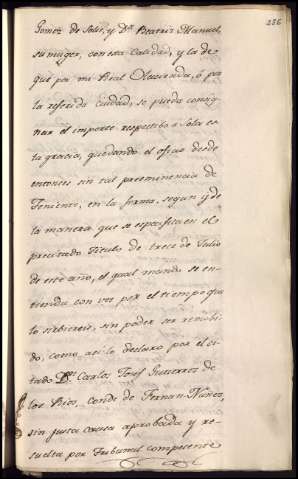 236
Gomez de Solis, y Dª Beatriz Manuel,
su muger, con esta calidad, y la de
que por mi Real Hacienda, ó por
la referida ciudad, se pueda consig-
nar el importe respectibo á sola es-
ta gracia, quedando el oficio desde
entonces sin tal preeminencia de
Teniente, en la forma, segun y de
la manera que se especifica en el
precitado Titulo de trece de Julio
de este año, el qual mando se en-
tienda con vos por el tiempo que
lo sirbiereis, sin poder ser remobi-
do, como asi lo declaro por el ci-
tado Dn Carlos Josef Gutierrez de
los Rios, conde de Fernan-Nuñez,
sin justa causa aprobada y re-
suelta por Tribunal competente